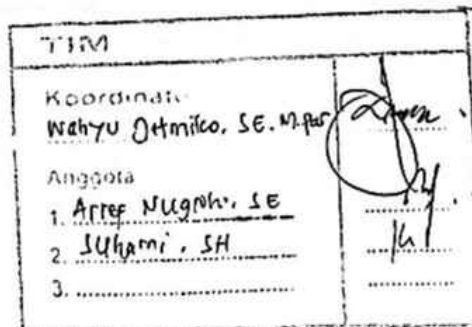 TIM
Koordinator
Wahyu SE. M.Par
Anggota
1. Arief Nugroho, SE
2. Suharni, SH
3.